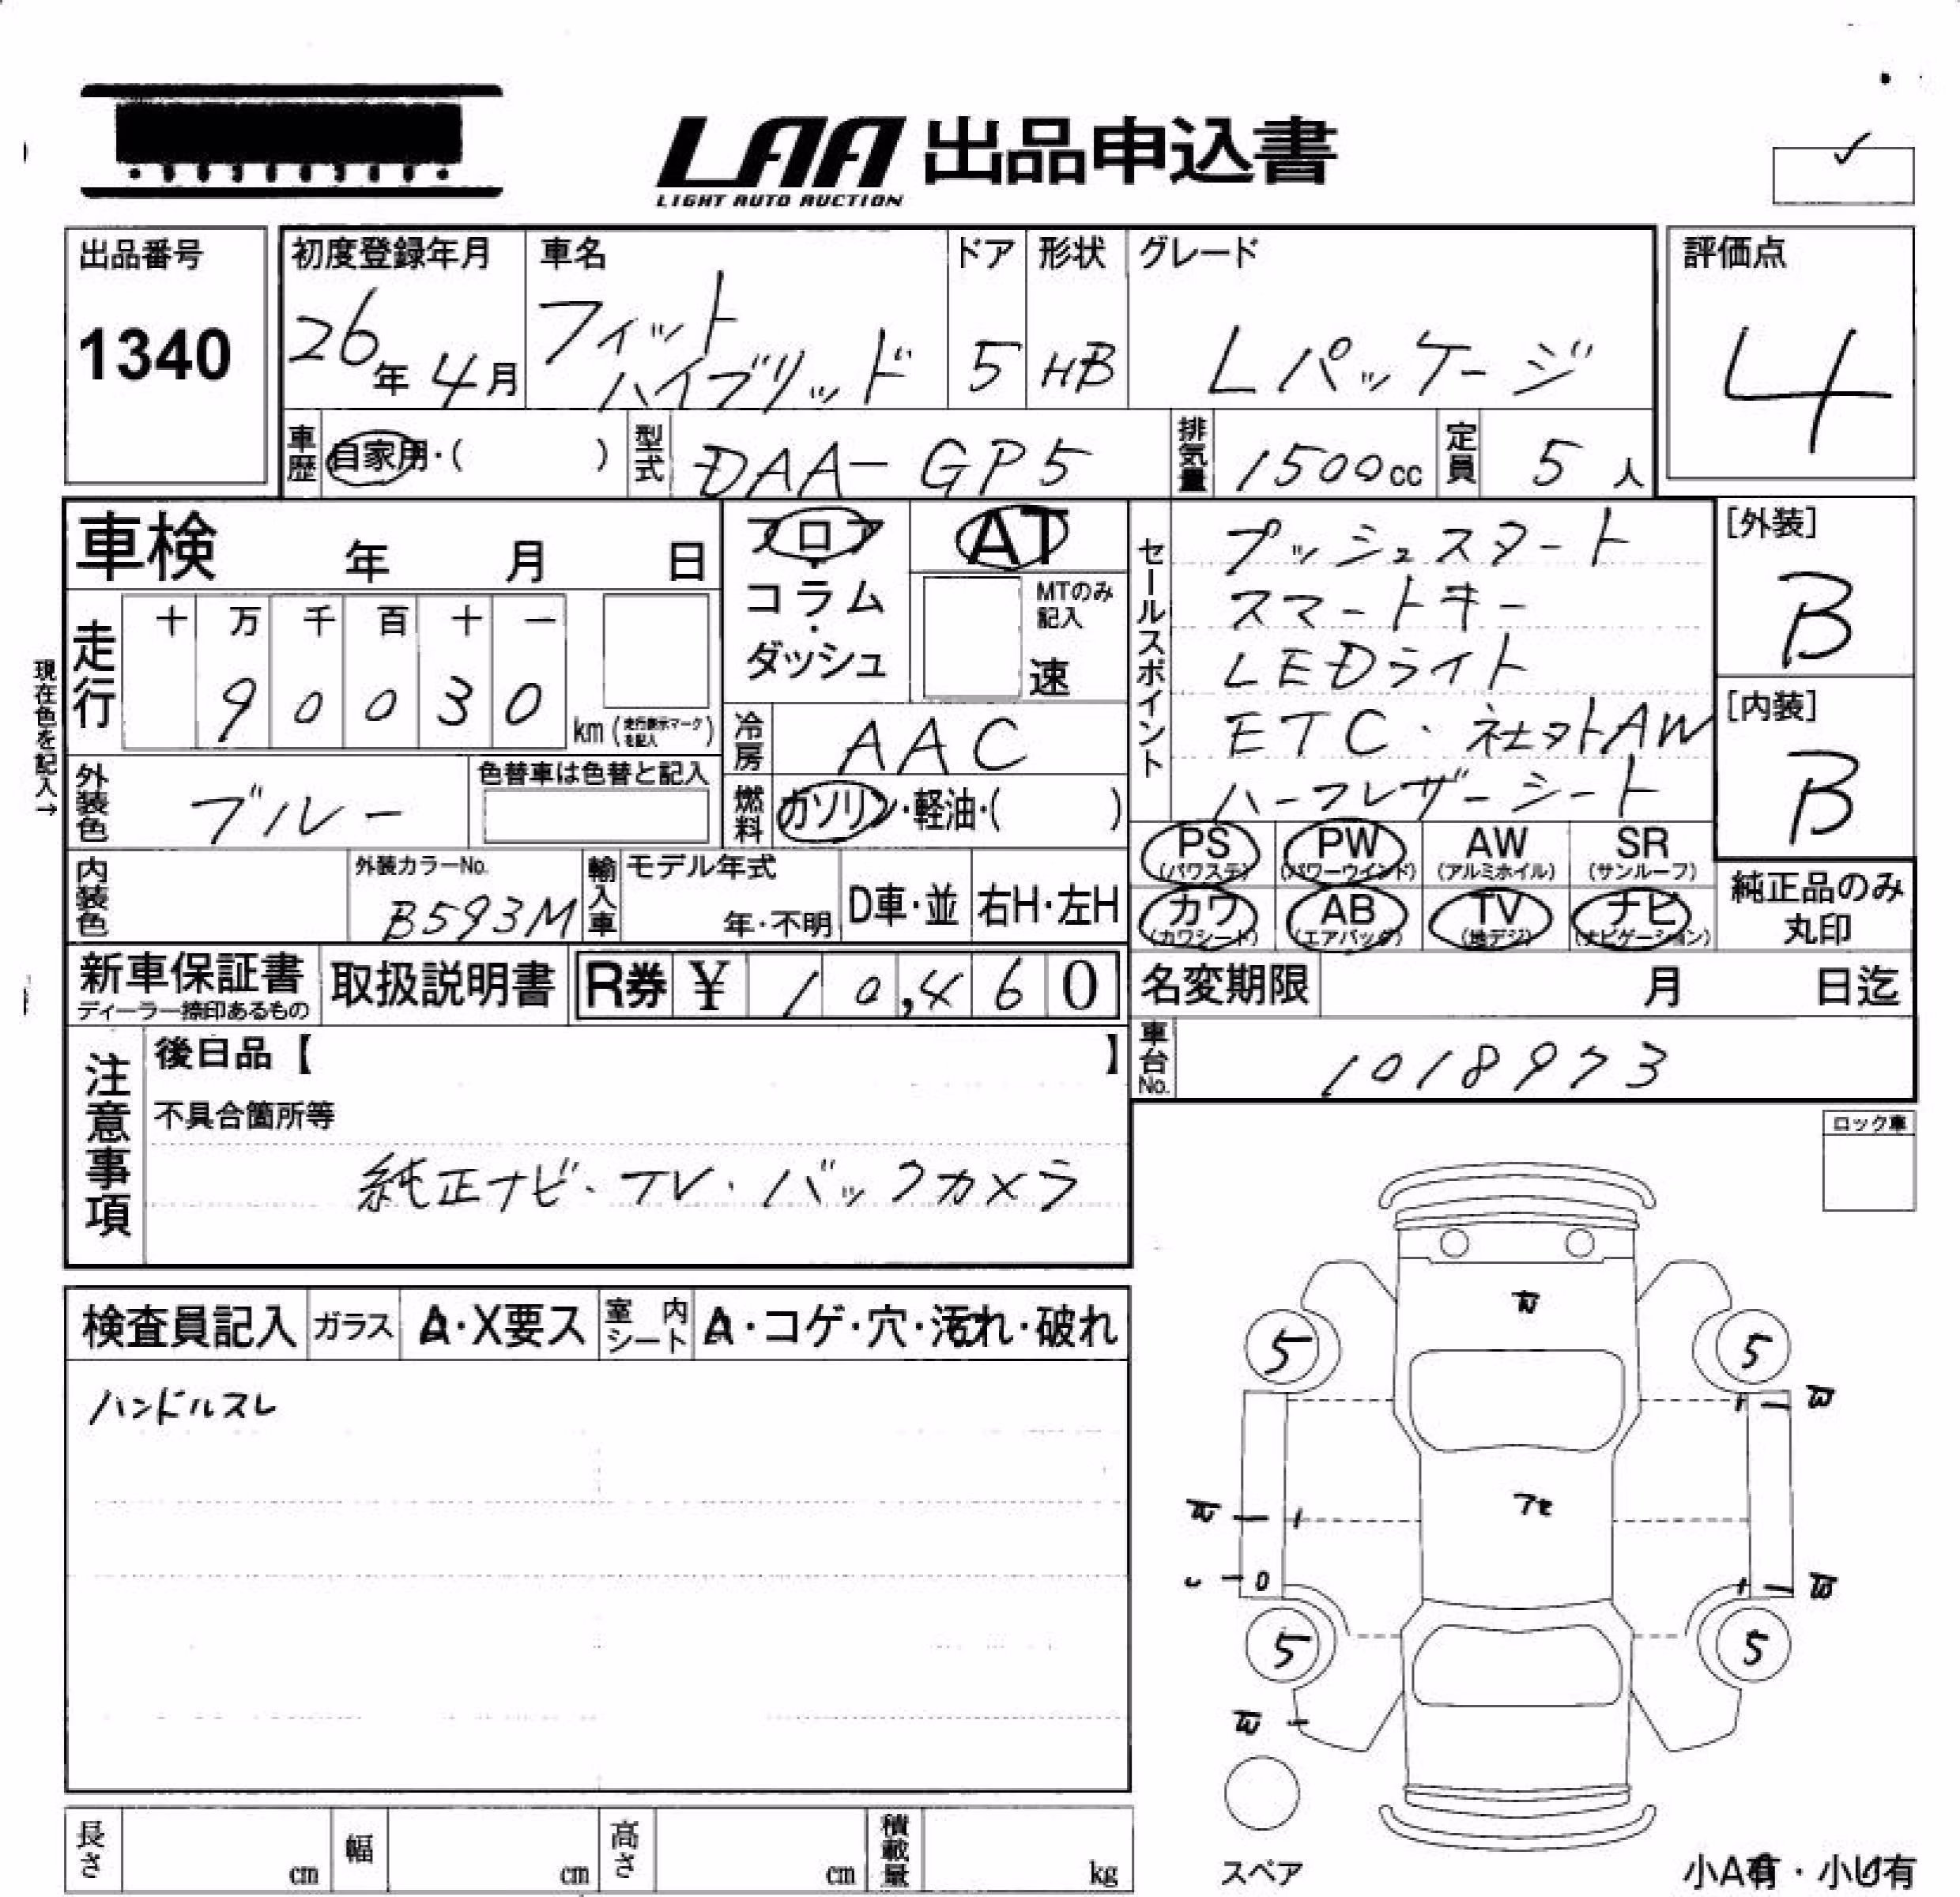 LAA 出品申込書
LIGHT AUTO AUCTION
出品番号
1340
初度登録年月
26年 4月
車名
フィット
ハイブリッド
ドア
5
形状
HB
グレード
Lパッケージ
評価点
4
車歴 自家用・( )
型式 DAA-GP5
排気量 1500cc
定員 5人
車検 年 月 日
フロア・コラム・ダッシュ
AT
MTのみ記入
速
セールスポイント
プッシュスタート
スマートキー
LEDライト
ETC・社外AW
ハーフレザーシート
[外装]
B
[内装]
B
現在色を記入→
走行
十 万 千 百 十 一
9 0 0 3 0
km (走行表示マークを記入)
冷房 AAC
外装色 ブルー
色替車は色替と記入
燃料 ガソリン・軽油・( )
PS (パワステ)
PW (パワーウインド)
AW (アルミホイル)
SR (サンルーフ)
内装色
外装カラーNo.
B593M
輸入車
モデル年式
年・不明
D車・並
右H・左H
カワ (カワシート)
AB (エアバッグ)
TV (地デジ)
ナビ (ナビゲーション)
純正品のみ
丸印
新車保証書
ディーラー捺印あるもの
取扱説明書
R券 ¥ 10,460
名変期限 月 日迄
注意事項
後日品【 】
車台No. 1018973
不具合箇所等
純正ナビ・TV・バックカメラ
ロック車
検査員記入
ガラス A・X要ス
室内シート A・コゲ・穴・汚れ・破れ
ハンドルスレ
5
5
5
5
スペア
長さ cm
幅 cm
高さ cm
積載量 kg
小A有・小U有